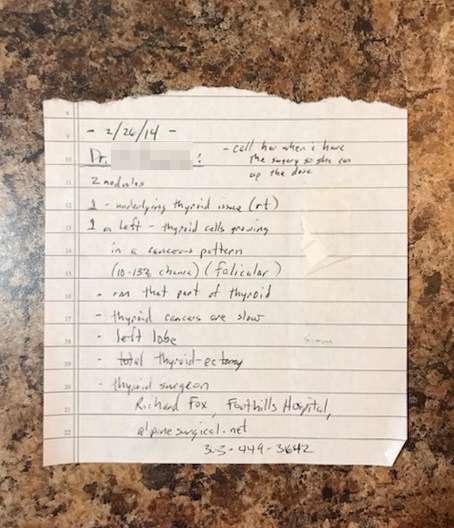 - 2/26/14 -
Dr. :
- call her when i have
the surgery so she can
up the dose
2 nodules
1 - underlying thyroid issue (rt)
1 on Left - thyroid cells growing
in a cancerous pattern
(10-15% chance) (folicular)
- rm that part of thyroid
- thyroid cancers are slow
- left lobe
- total thyroid-ectomy
- thyroid surgeon
Richard Fox, Foothills Hospital,
alpinesurgical.net
303-449-3642